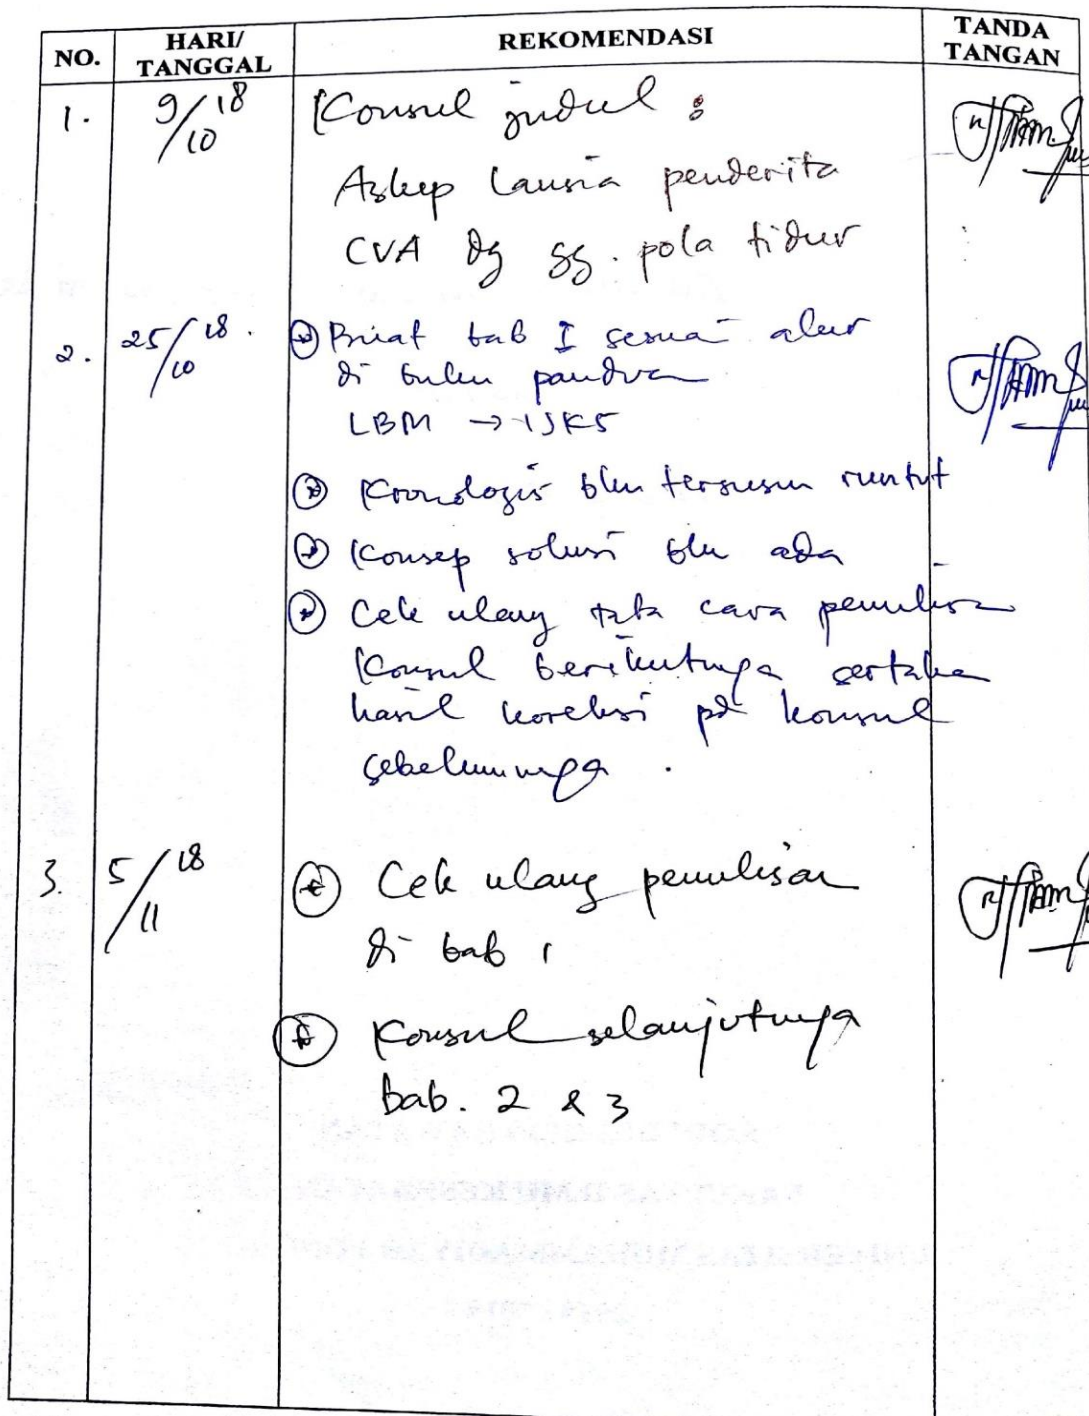 NO.
HARI/
TANGGAL
REKOMENDASI
TANDA
TANGAN
1.
9/10 18
Konsul judul :
Askep Lansia penderita
CVA dg gg. pola tidur
2.
25/10 18.
Buat bab I sesuai alur
di buku panduan
LBM → IJKS
Kronologis blm tersusun runtut
Konsep solusi blm ada
Cek ulang tata cara penulisan
Konsul berikutnya sertakan
hasil koreksi pd konsul
sebelumnya.
3.
5/11 18
Cek ulang penulisan
di bab 1
Konsul selanjutnya
bab. 2 & 3